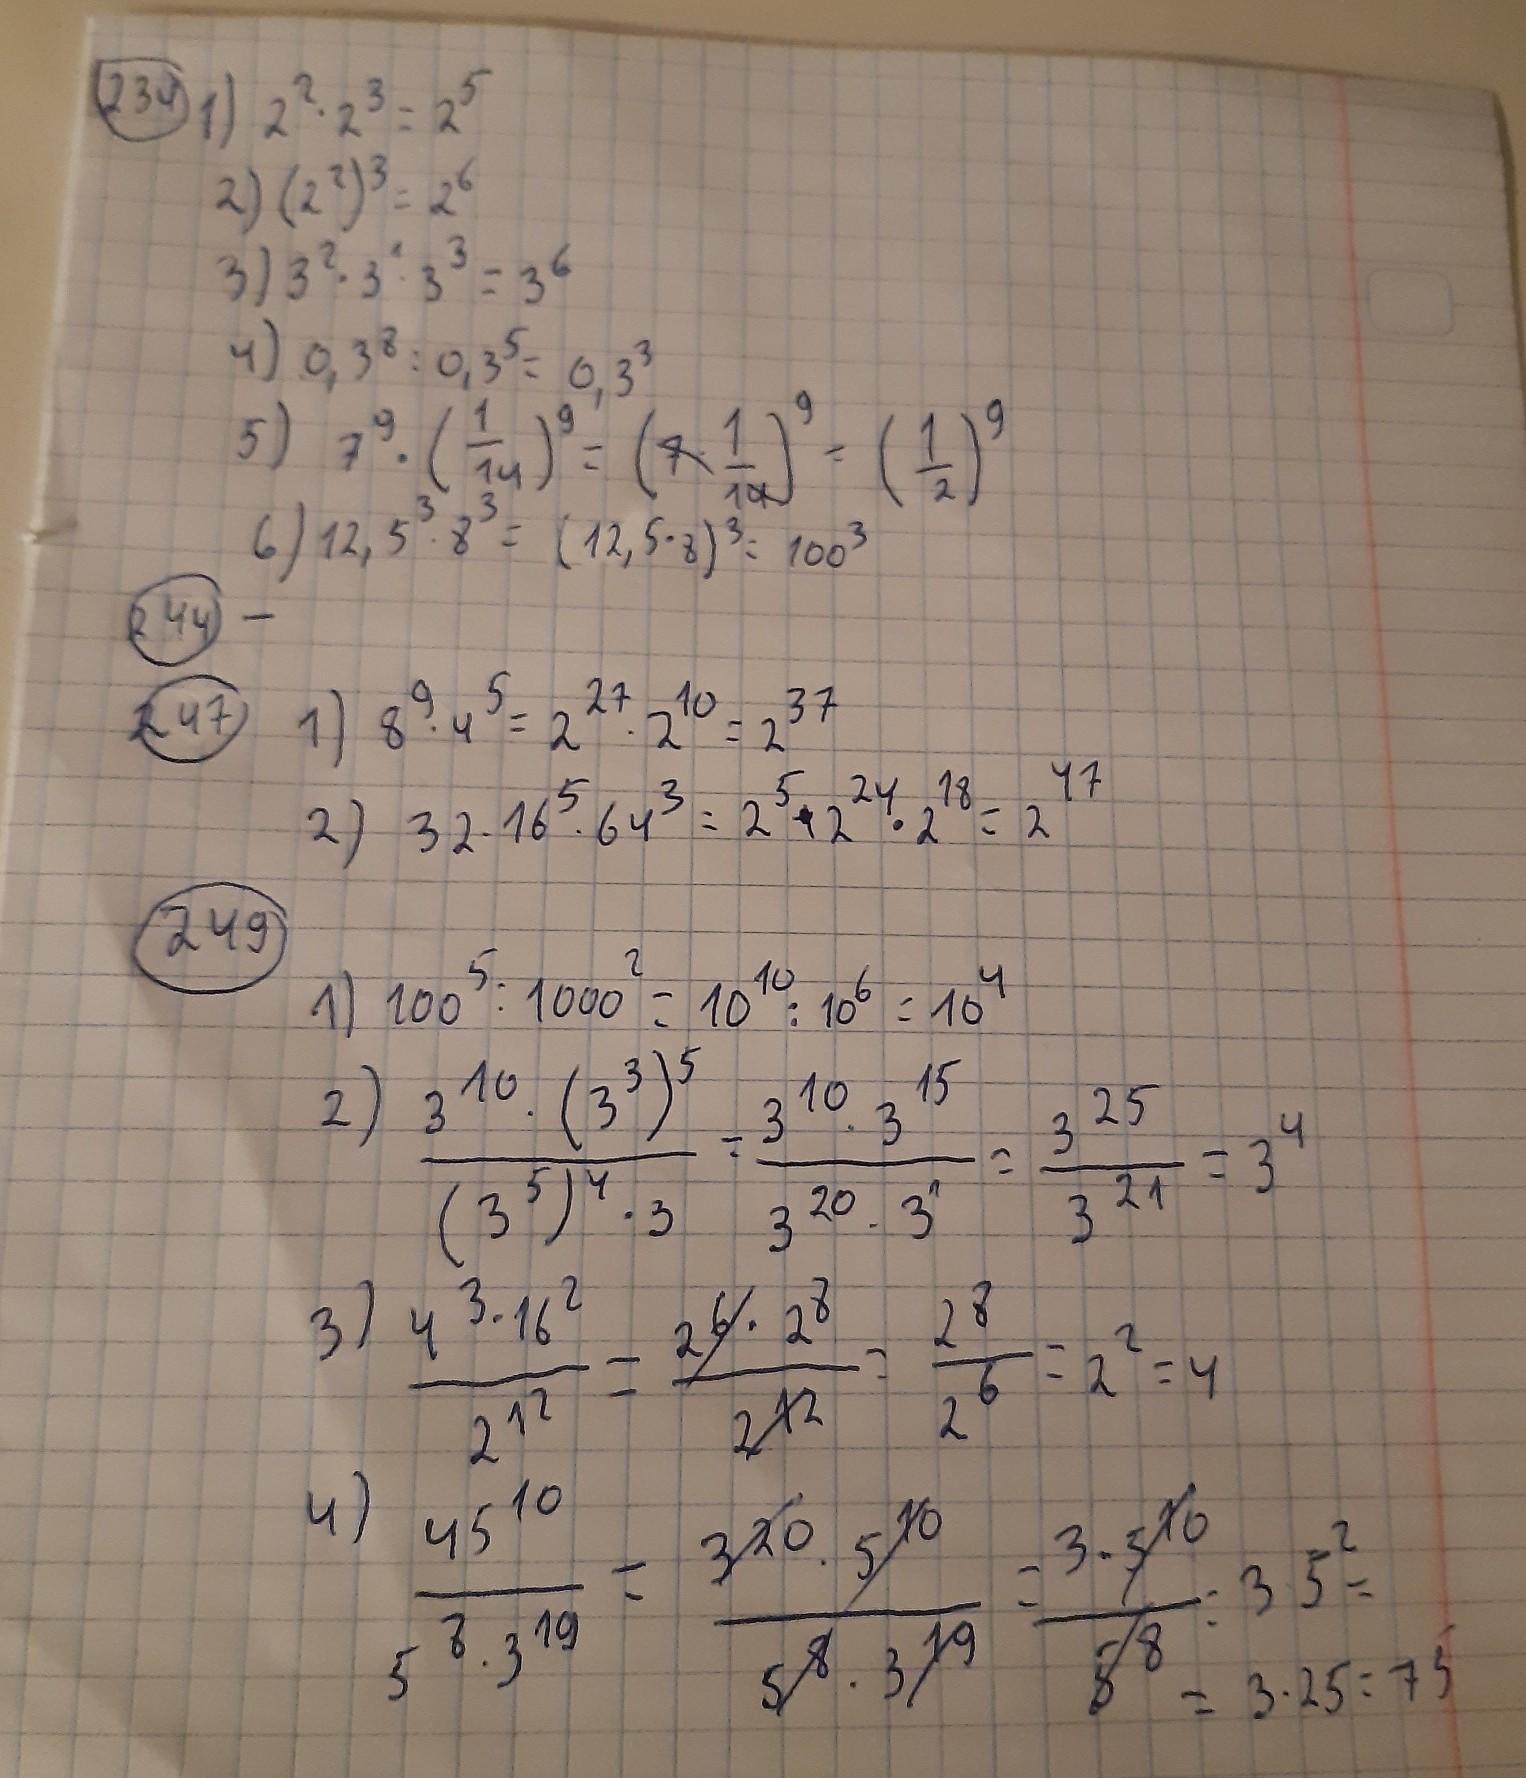 234 1) 2² · 2³ = 2⁵
2) (2²)³ = 2⁶
3) 3² · 3¹ · 3³ = 3⁶
4) 0,3⁸ : 0,3⁵ = 0,3³
5) 7⁹ · (1/14)⁹ = (7 · 1/14)⁹ = (1/2)⁹
6) 12,5³ · 8³ = (12,5 · 8)³ = 100³
244 –
247 1) 8⁹ · 4⁵ = 2²⁷ · 2¹⁰ = 2³⁷
2) 32 · 16⁵ · 64³ = 2⁵ · 2²⁴ · 2¹⁸ = 2⁴⁷
249
1) 100⁵ : 1000² = 10¹⁰ : 10⁶ = 10⁴
2) (3¹⁰ · (3³)⁵)/((3⁵)⁴ · 3) = (3¹⁰ · 3¹⁵)/(3²⁰ · 3¹) = 3²⁵/3²¹ = 3⁴
3) (4³ · 16²)/2¹² = (2⁶ · 2⁸)/2¹² = 2⁸/2⁶ = 2² = 4
4) 45¹⁰/(5⁸ · 3¹⁹) = (3²⁰ · 5¹⁰)/(5⁸ · 3¹⁹) = (3 · 5¹⁰)/5⁸ = 3 · 5² =
= 3 · 25 = 75